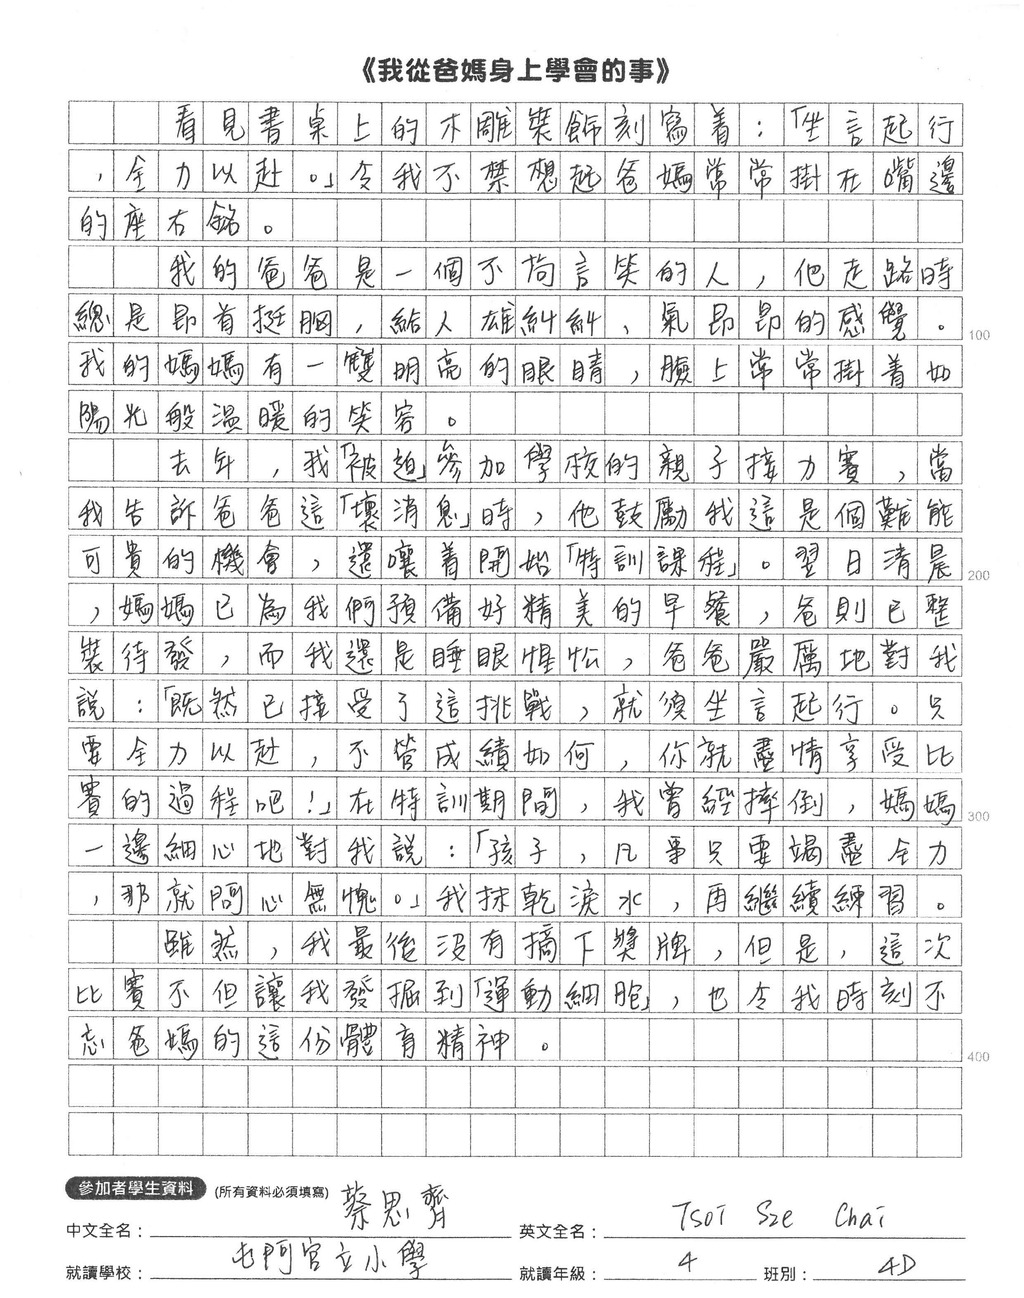 《我從爸媽身上學會的事》
看見書桌上的木雕裝飾刻寫着：「坐言起行
，全力以赴。」令我不禁想起爸媽常常掛在嘴邊
的座右銘。
我的爸爸是一個不苟言笑的人，他走路時
總是昂首挺胸，給人雄糾糾，氣昂昂的感覺。
100
我的媽媽有一雙明亮的眼睛，臉上常常掛着如
陽光般温暖的笑容。
去年，我「被迫」參加學校的親子接力賽，當
我告訴爸爸這「壞消息」時，他鼓勵我這是個難能
可貴的機會，還嚷着開始「特訓課程」。翌日清晨
200
，媽媽已為我們預備好精美的早餐，爸則已整
裝待發，而我還是睡眼惺忪，爸爸嚴厲地對我
說：「既然已接受了這挑戰，就須坐言起行。只
要全力以赴，不管成績如何，你就盡情享受比
賽的過程吧！」在特訓期間，我曾經摔倒，媽媽
300
一邊細心地對我說：「孩子，凡事只要竭盡全力
，那就問心無愧。」我抹乾淚水，再繼續練習。
雖然，我最後沒有摘下獎牌，但是，這次
比賽不但讓我發掘到「運動細胞」，也令我時刻不
忘爸媽的這份體育精神。
400
參加者學生資料 (所有資料必須填寫)
中文全名：蔡思齊 英文全名：Tsoi Sze Chai
就讀學校：屯門官立小學 就讀年級：4 班別：4D